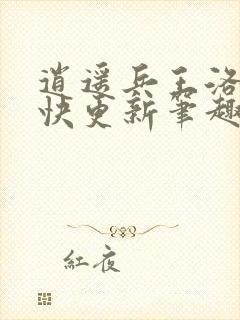 逍遥兵王洛
快更新笔趣
紅夜